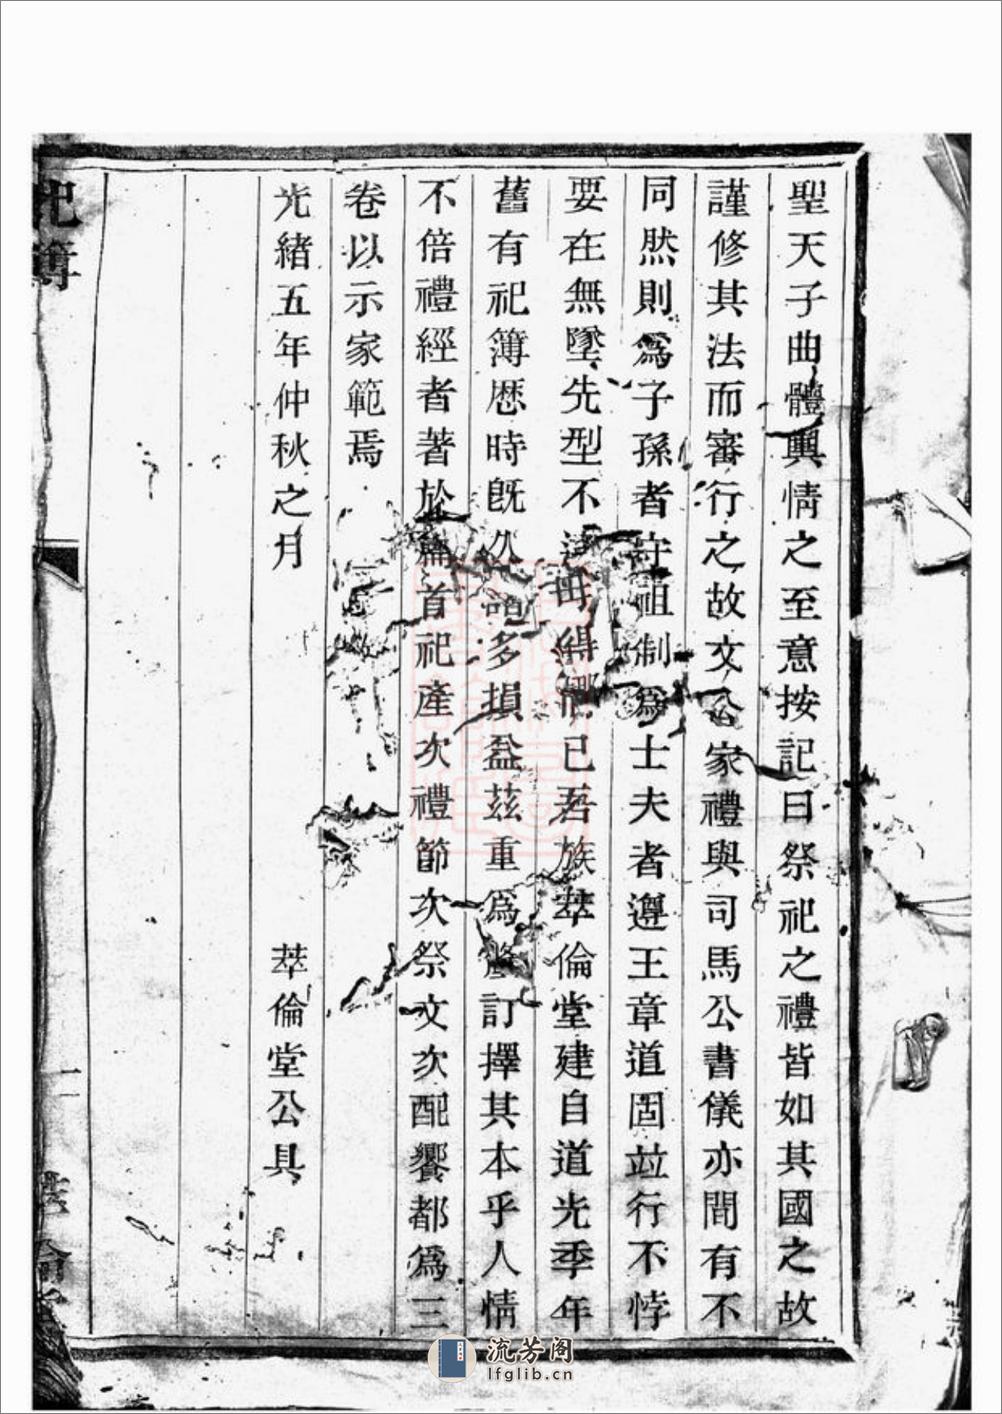 聖天子曲體輿情之至意按記曰祭祀之禮皆如其國之故
謹修其法而審行之故文公家禮與司馬公書儀亦間有不
同然則為子孫者守祖制為士夫者遵王章道固竝行不悖
要在無墜先型不毋得已吾族萃倫堂建自道光季年
舊有祀簿歷時既久多損益茲重為修訂擇其本乎人情
不倍禮經者著於篇首祀產次禮節次祭文次配饗都為三
卷以示家範焉
光緒五年仲秋之月 萃倫堂公具
祀簿
流芳阁
lfglib.cn